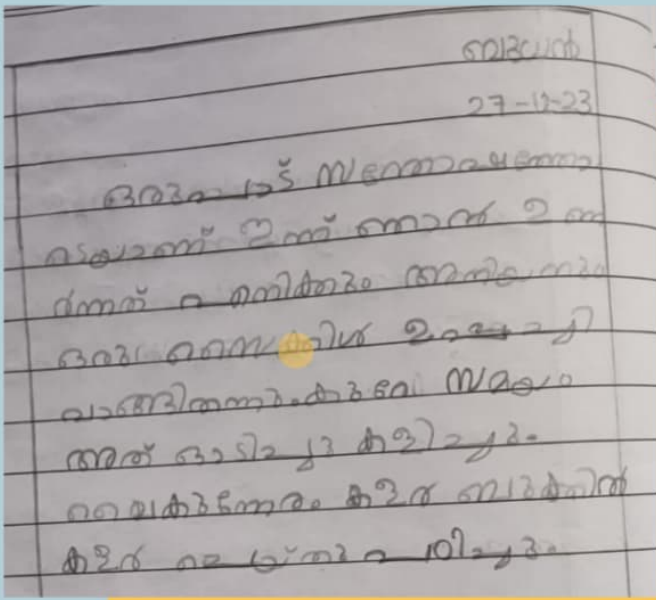 ബുധൻ
27-12-23
ഒരുപാട് സന്തോഷത്തോ
ടെയാണ് ഇന്ന് ഞാൻ ഉണ
ർന്നത് എനിക്കും അനിയനും
ഒരു സൈക്കിൾ ഉപ്പച്ചി
വാങ്ങിതന്നു.കുറേ സമയം
അത് ഓടിച്ചു കളിച്ചു.
വൈകുന്നേരം കളർ ബുക്കിൽ
കളർ ചെയ്തു പഠിച്ചു.